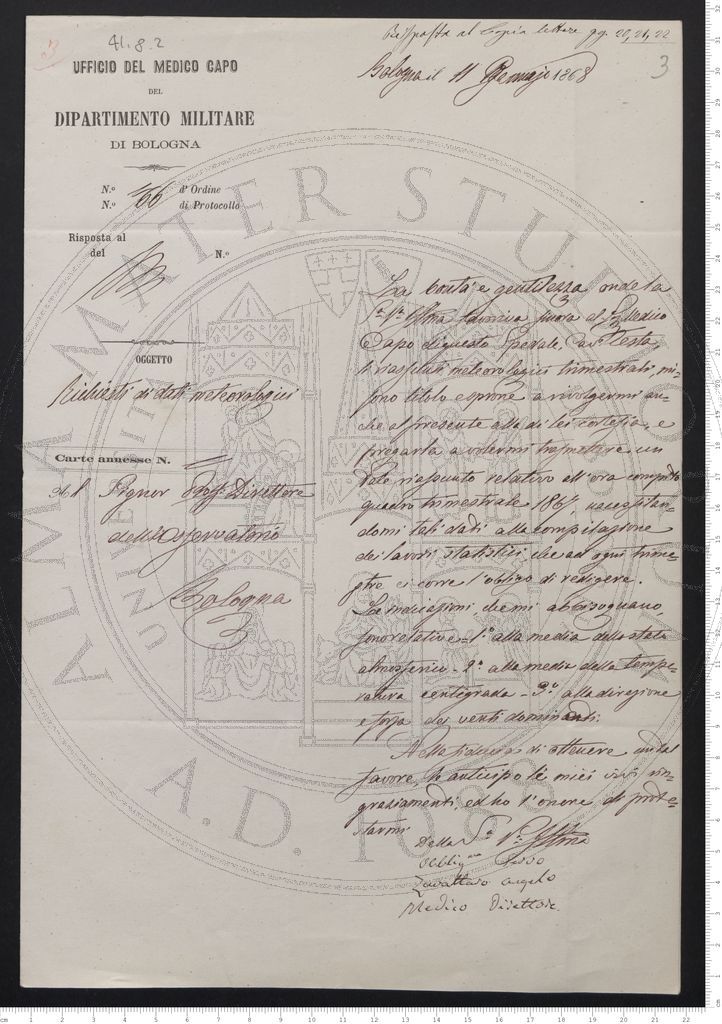 Risposta al Copia lettere pg. 20, 21, 22
41.8.2
3
UFFICIO DEL MEDICO CAPO
DEL
DIPARTIMENTO MILITARE
DI BOLOGNA
Bologna il 11 Gennajo 1868
N.º 66 d'Ordine
N.º di Protocollo
Risposta al
del N.º
OGGETTO
Richiesti di dati meteorologici
Carte annesse N.
Al Signor Prof. Direttore
dell'Osservatorio
Bologna
La bontà e gentilezza onde la
S.a V.a Illma favoriva finora al Medico
Capo di questo Spedale, Cav. Testa
i riassunti meteorologici trimestrali, mi
sono titolo e sprone a rivolgermi an-
che al presente alla di lei cortesia, e
pregarla a volermi trasmettere un
tale riassunto relativo all'ora compiuto
quarto trimestrale 1867, necessitan-
domi tali dati alla compilazione
dei lavori statistici che ad ogni trime-
stre ci corre l'obbligo di redigere.
Le indicazioni che mi abbisognano
sono relative - 1.º alla media dello stato
atmosferico - 2.º alla media della tempe-
ratura centigrada - 3.º alla direzione
e forza dei venti dominanti.
Nella fiducia di ottenere un tal
favore, le anticipo le miei vivi rin-
graziamenti, ed ho l'onore di prote-
starmi
Della S.a V.a Illma
Obblig.mo Servo
Zavattaro Angelo
Medico Direttore
ALMA MATER STUDIORUM
A.D. 1088